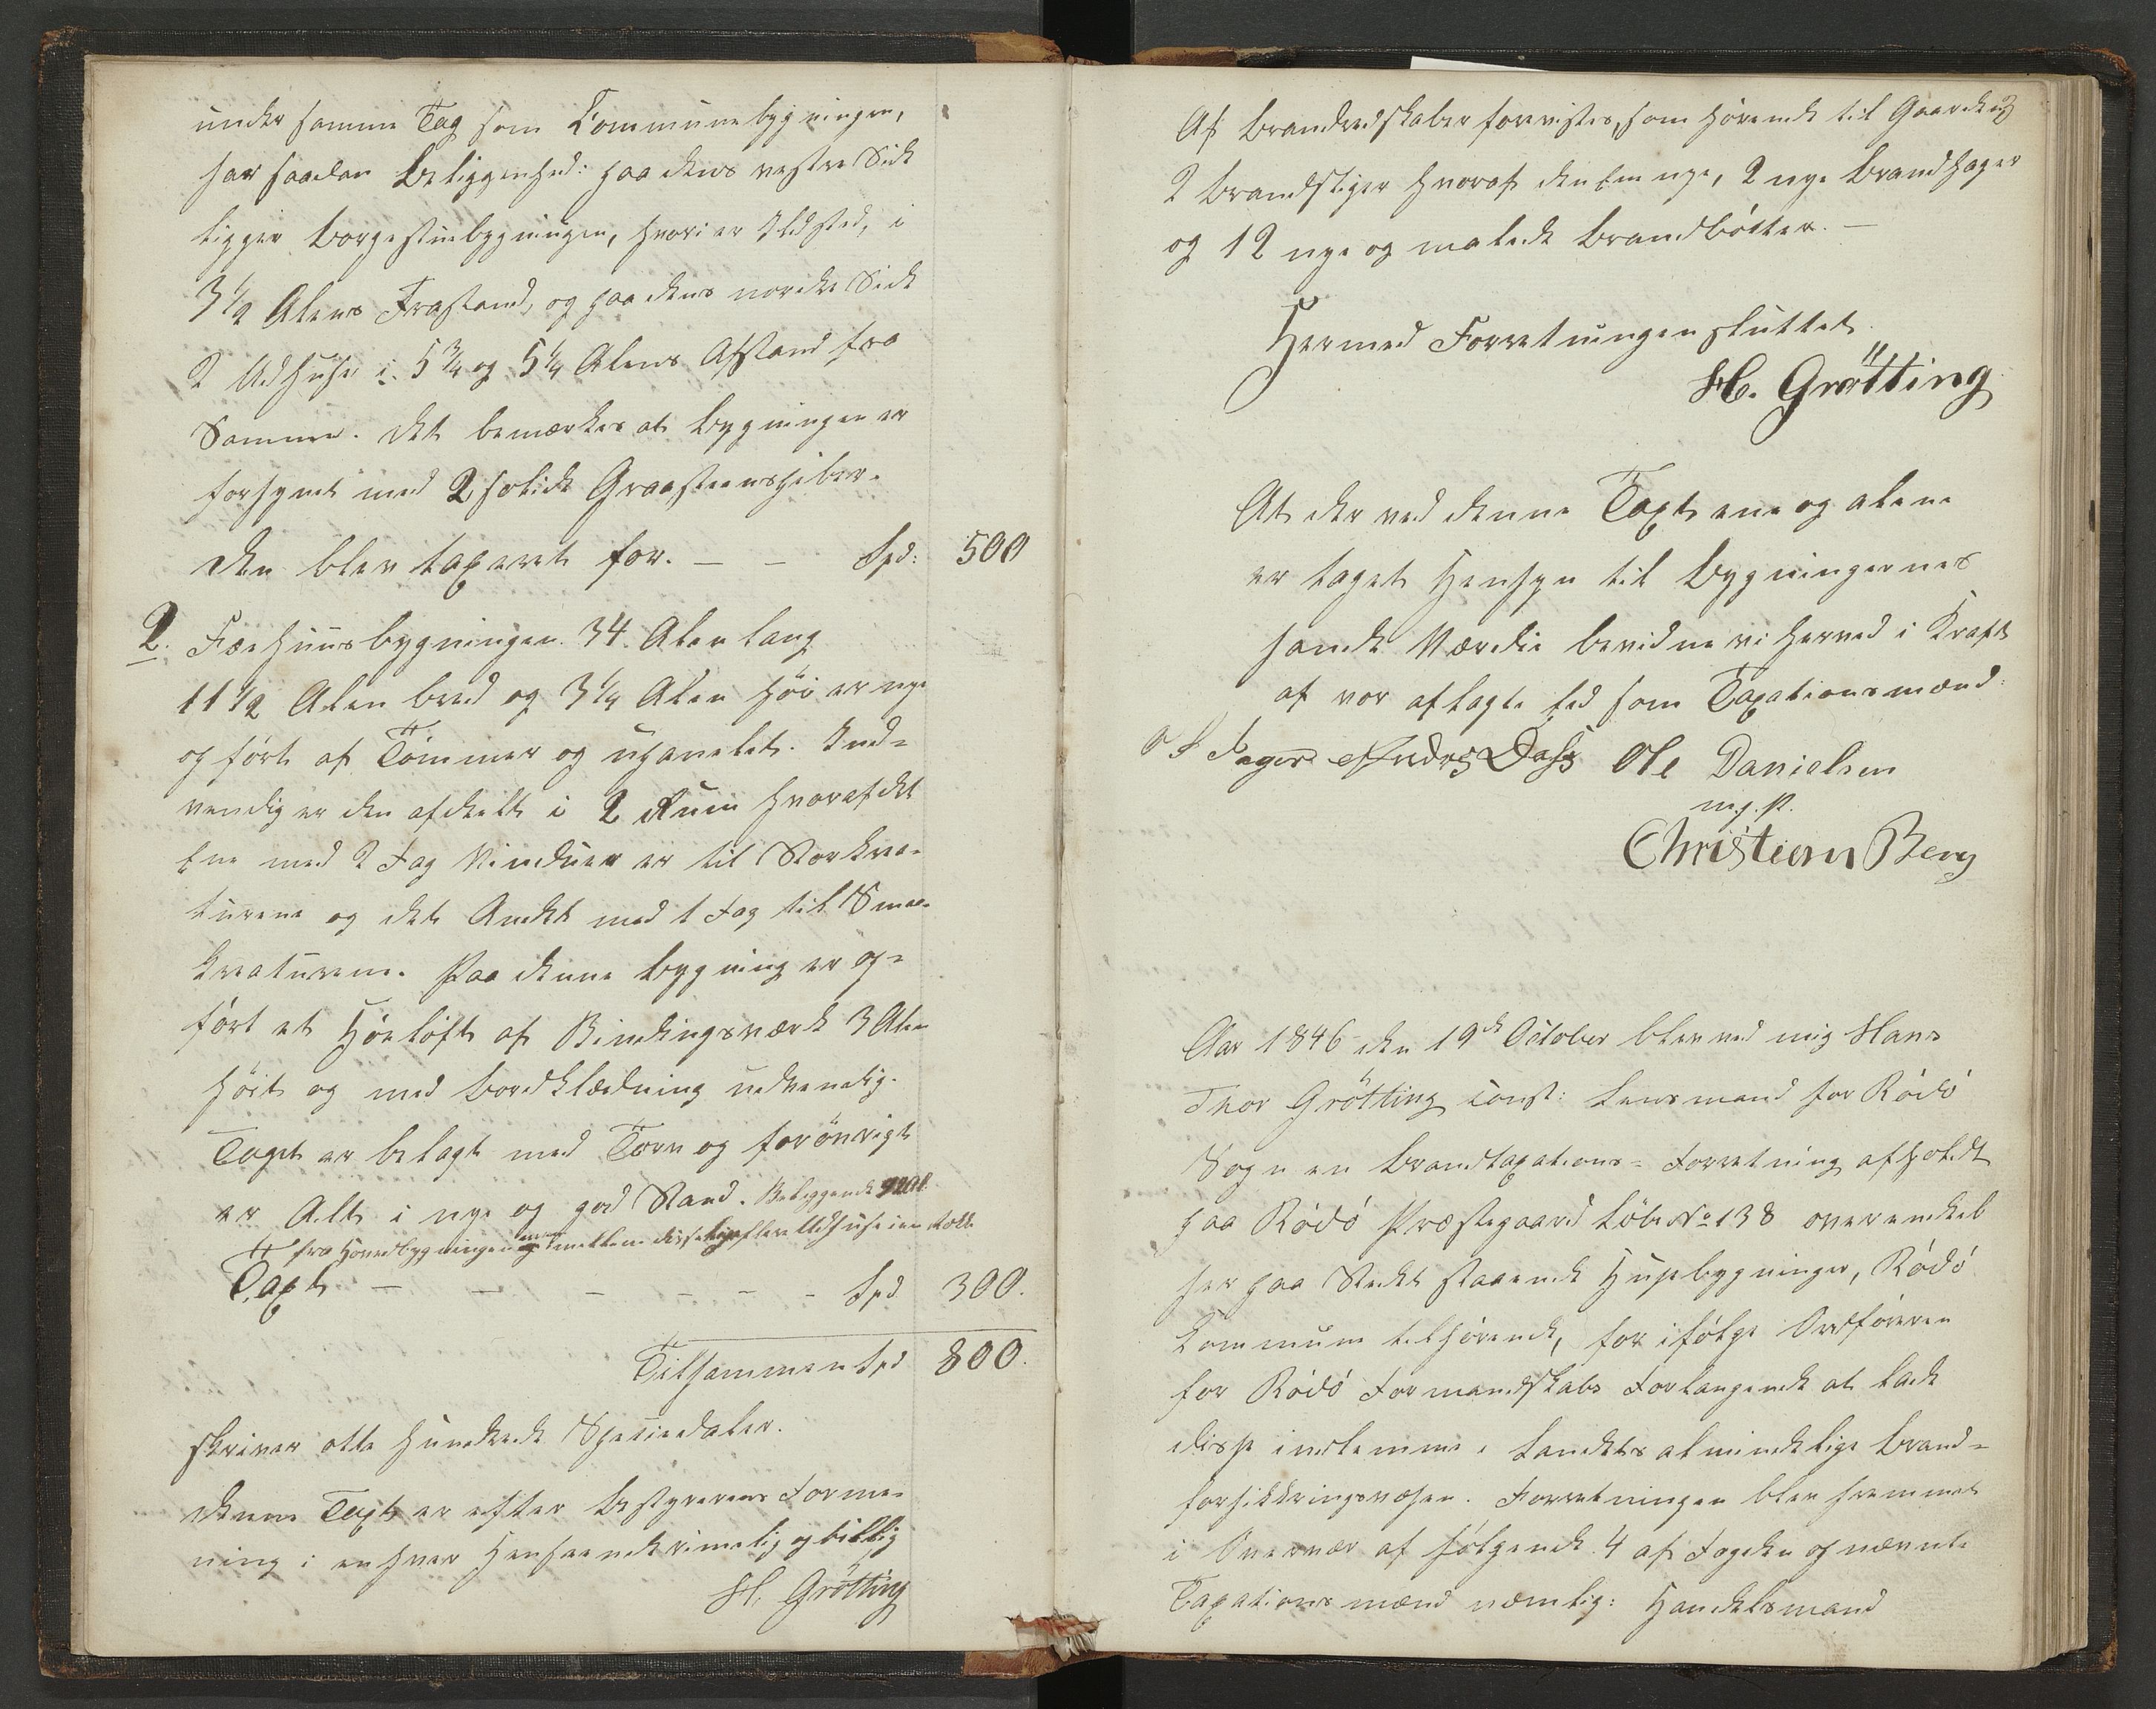 under samme Tag som Communebygningen,
har saadan Beliggenhed: paa dens vestre Side
ligger Borgestuebygningen, hvori er Ildsted, i
3 1/2 Alens Frastand, og paa dens nordre Side
2 Udhuse i 5 3/4 og 5 1/4 Alens Afstand fra
Samme. Det bemærkes at Bygningen er
forsynet med 2 solide Graasteenspiber.
Den blev taxeret for. — — Spd: 500
2. Fæehuusbygningen. 34. Alen lang
11 1/2 Alen bred og 3 1/4 Alen høi er nye
opført af Tømmer og upanelet. Ind-
vendig er den afdeelt i 2 Rum hvoraf det
Ene med 2 Fag Vinduer er til Storkrea-
turene og det Andet med 1 Fag til Smaa-
kreaturene. Paa denne Bygning er op-
ført et Høeloft af Bindingsværk 3 Alen
høit og med Bordklædning udvendig.
Taget er belagt med Torv og forøvrigt
er Alt i nye og god Stand. Beliggende 92 Al.
fra Hovedbygningen og mellem disse ligge flere Udhuse i en Række
Taxt — — — — — — Spd 300.
Tilsammen Spd 800.
skriver otte hundrede Speciedaler.
Denne Taxt er efter Bestyrerens Forme-
ning i enhver Henseende rimelig og billig
H. Grøtting
Af Brandredskaber forevistes, som hørende til Gaarden
2 Brandstiger hvoraf den Een nye, 2 nye Brandhager
og 12 nye og malede Brandbøtter. —
Hermed Forretningen sluttet.
H. Grøtting
At der ved denne Taxt ene og alene
er taget Hensyn til Bygningernes
sande Værdie bevidne vi herved i Kraft
af vor aflagte Eed som Taxationsmænd:
O S Jager Andr Dass Ole Danielsen
m. p.
Christian Berg
Aar 1846 den 19de October blev ved mig Hans
Thor Grøtting const: Lensmand for Rødø
Sogn en Brandtaxations-Forretning afholdt
paa Rødø Præstegaard Løbe No 138 over endeel
her paa Stedet staaende Huusbygninger, Rødø
Commune tilhørende, for ifølge Ordføreren
for Rødø Formandskabs Forlangende at lade
disse indlemme i Landets almindelige Brand-
forsikkringsvæsen. Forretningen blev fremmet
i Overvær af følgende 4 af Fogden opnævnte
Taxationsmænd nemlig: Handelsmand